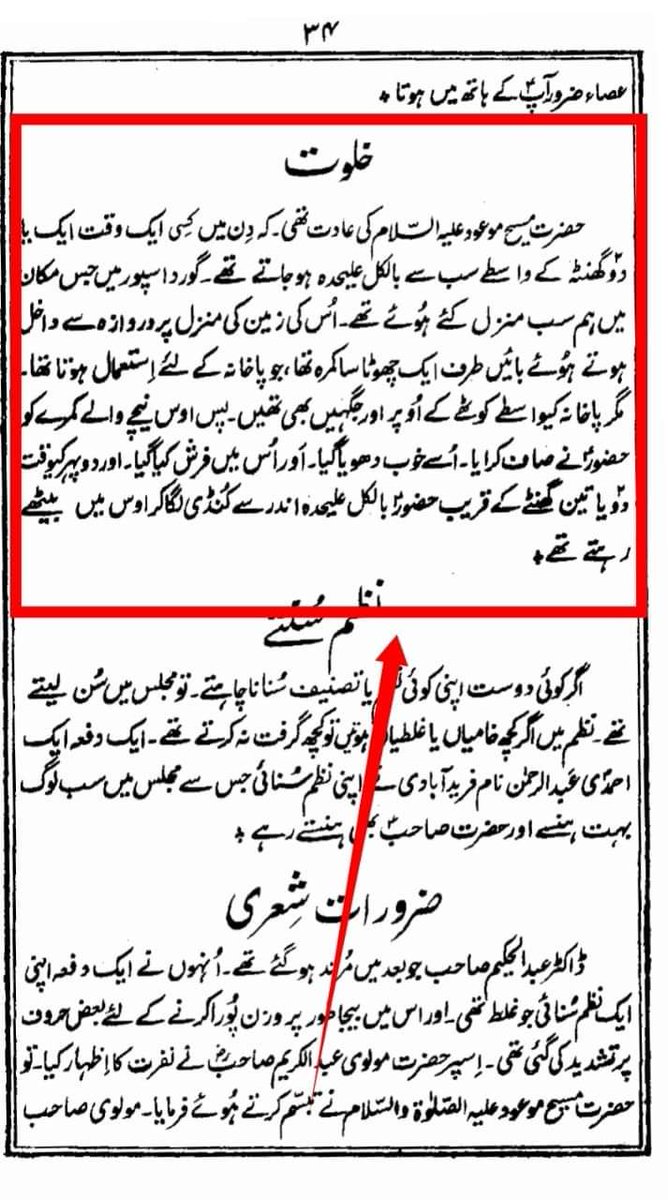 ۳۴
عصاء ضرور آپؑ کے ہاتھ میں ہوتا ٭
خلوت
حضرت مسیح موعود علیہ السّلام کی عادت تھی۔ کہ دِن میں کِسی ایک وقت ایک یا
دو۲ گھنٹہ کے واسطے سب سے بالکل علیحدہ ہو جاتے تھے۔ گورداسپور میں جس مکان
میں ہم سب منزل کئے ہُوئے تھے۔ اُس کی زمین کی منزل پر دروازہ سے داخل
ہوتے ہُوئے بائیں طرف ایک چھوٹا سا کمرہ تھا، جو پاخانہ کے لئے اِستعمال ہوتا تھا۔
مگر پاخانہ کیواسطے کوٹھے کے اُوپر اور جگہیں بھی تھیں۔ پس اوس نیچے والے کمرے کو
حضورؑ نے صاف کرایا۔ اُسے خوب دھویا گیا۔ اَور اُس میں فرش کیا گیا۔ اور دوپہر کیوقت
دو۲ یا تین گھنٹے کے قریب حضورؑ بالکل علیحدہ اندر سے کُنڈی لگا کر اوس میں بیٹھے
رہتے تھے ٭
نظم سُننے
اگر کوئی دوست اپنی کوئی نظم یا تصنیف سُنانا چاہتے۔ تو مجلس میں سُن لیتے
تھے۔ نظم میں اگر کچھ خامیاں یا غلطیاں ہوتیں تو کچھ گرفت نہ کرتے تھے۔ ایک دفعہ ایک
احمدی عبدالرحمٰن نام فریدآبادی نے اپنی نظم سُنائی جس سے مجلس میں سب لوگ
بہت ہنسے اور حضرت صاحبؑ بھی ہنستے رہے ٭
ضرورات شِعری
ڈاکٹر عبدالحکیم صاحب جو بعد میں مُرتد ہو گئے تھے۔ اُنہوں نے ایک دفعہ اپنی
ایک نظم سُنائی جو غلط تھی۔ اور اس میں بیجا طور پر وزن پُورا کرنے کے لئے بعض حروف
پر تشدید کی گئی تھی۔ اِسپر حضرت مولوی عبدالکریم صاحبؓ نے نفرت کا اِظہار کیا۔ تو
حضرت مسیح موعود علیہ الصّلوٰة والسّلام نے تبسّم کرتے ہُوئے فرمایا۔ مولوی صاحب